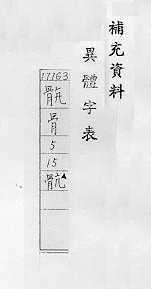 補充資料
異體字表
17163
骨
5
15
骯▲